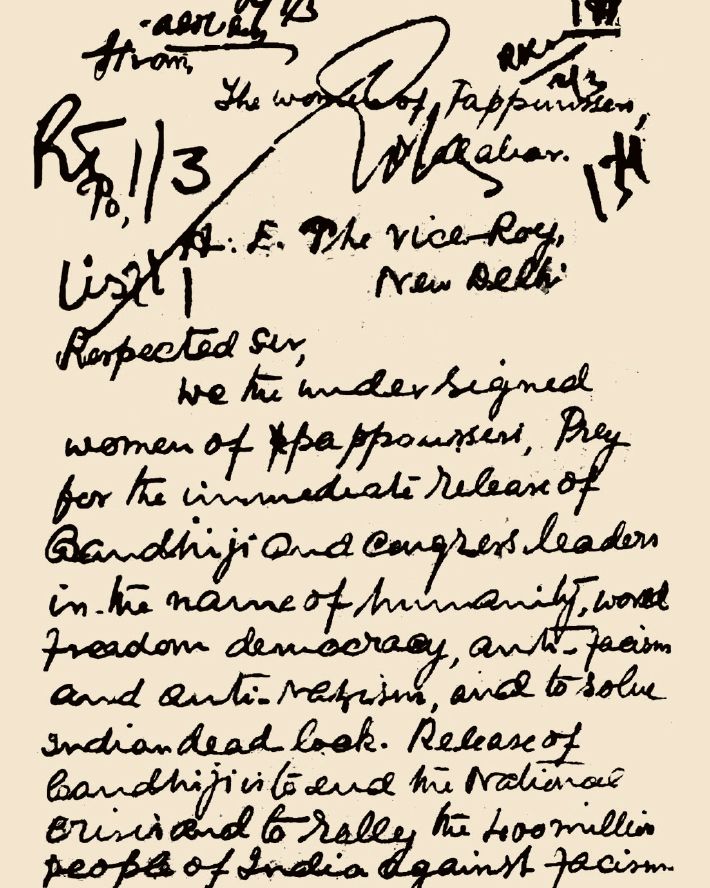 From,
The women of, Pappinissery,
Malabar.
R5 1/3
To,
H. E. The Vice-Roy,
New Delhi
List 1
Respected Sir,
We the undersigned
women of pappinisseri, Prey
for the immediate release of
Gandhiji and Congress leaders
in the name of humanity, world
freadom democracy, anti-facism
and anti-Nazism, and to solve
Indian dead lock. Release of
Gandhiji is to end the National
crisis and to rally the 400 million
people of India against facism